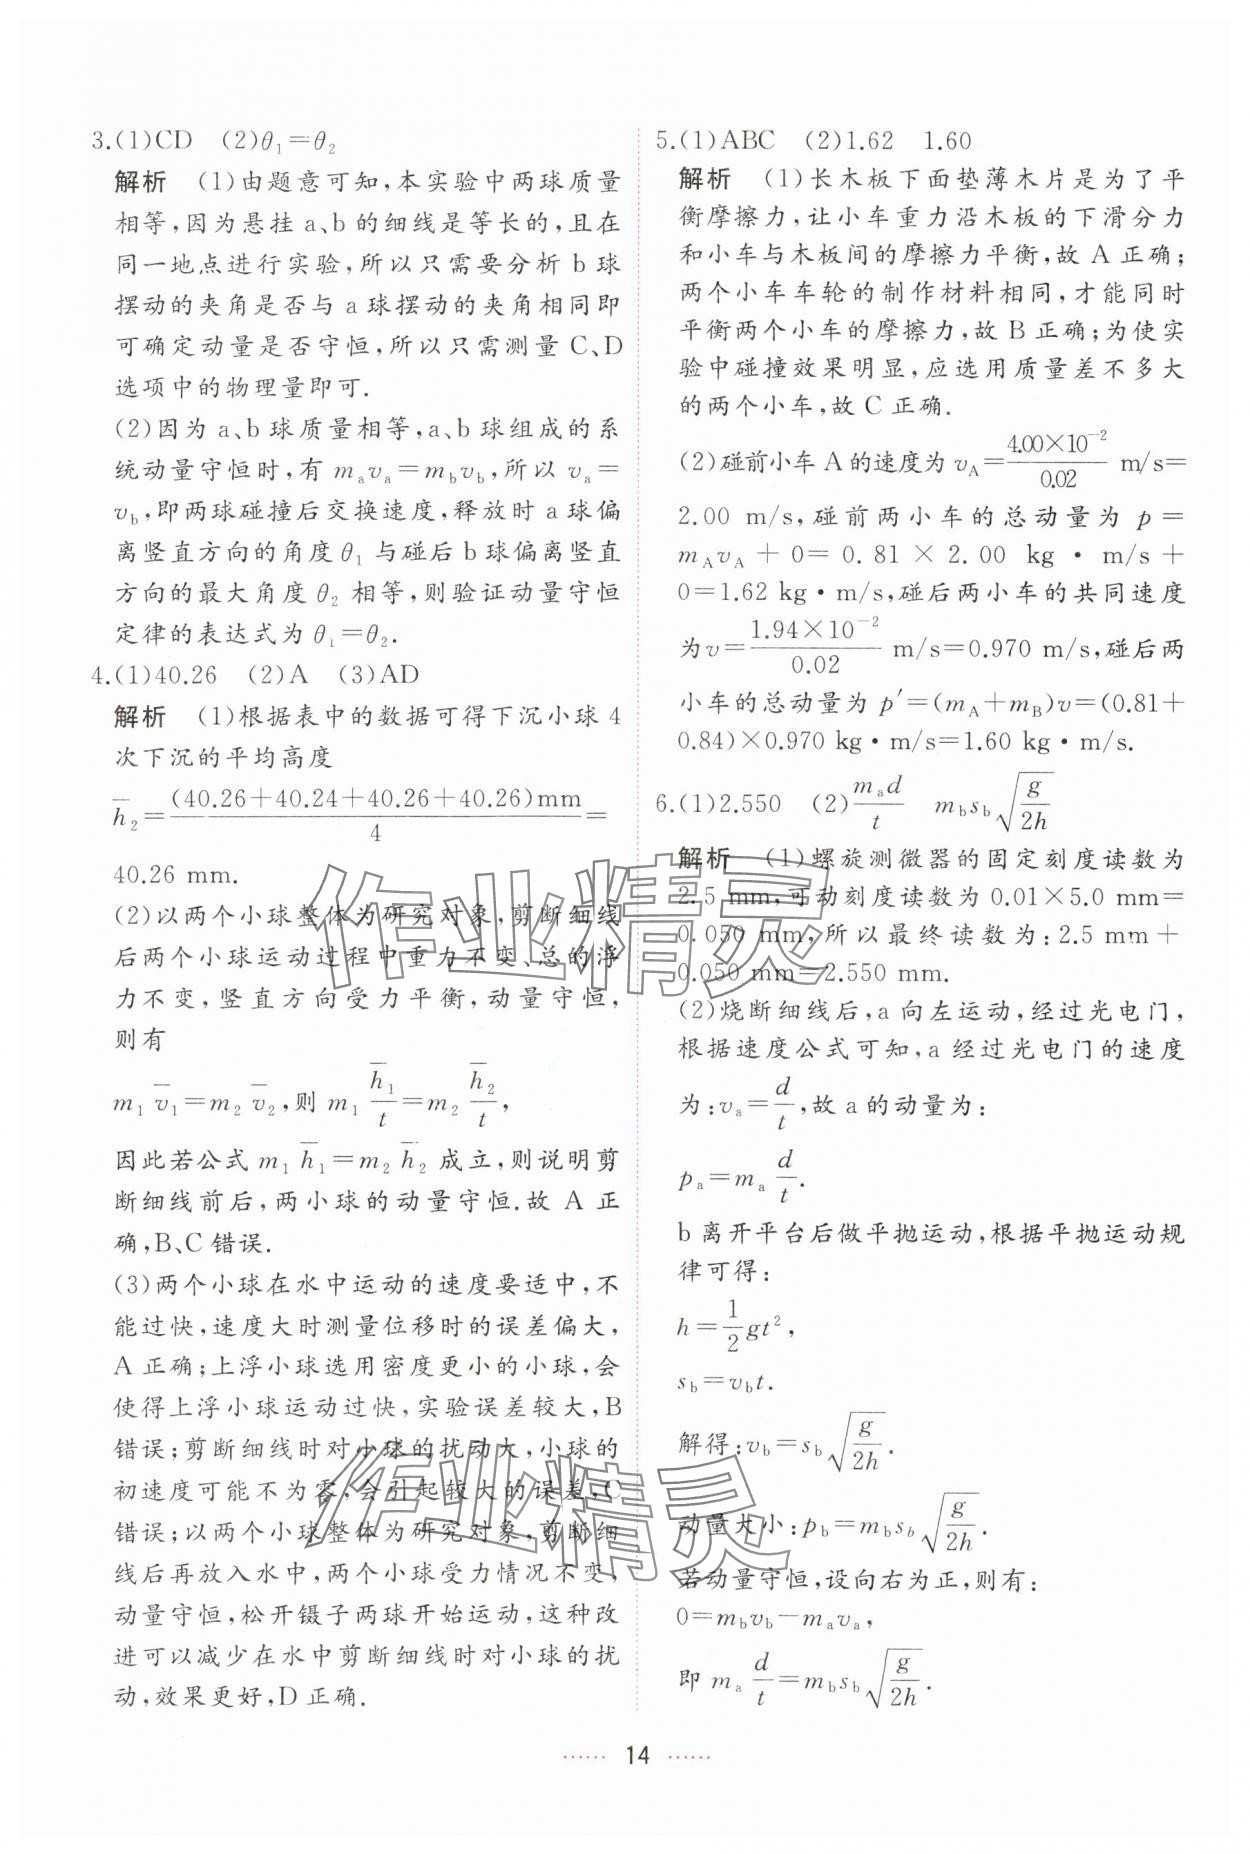 3.(1)CD (2)θ₁=θ₂
解析 (1)由题意可知,本实验中两球质量
相等,因为悬挂a、b的细线是等长的,且在
同一地点进行实验,所以只需要分析b球
摆动的夹角是否与a球摆动的夹角相同即
可确定动量是否守恒,所以只需测量C、D
选项中的物理量即可.
(2)因为a、b球质量相等,a、b球组成的系
统动量守恒时,有 mₐvₐ=m_bv_b,所以 vₐ=
v_b,即两球碰撞后交换速度,释放时a球偏
离竖直方向的角度θ₁与碰后b球偏离竖直
方向的最大角度θ₂相等,则验证动量守恒
定律的表达式为θ₁=θ₂.
4.(1)40.26 (2)A (3)AD
解析 (1)根据表中的数据可得下沉小球4
次下沉的平均高度
h̄₂=(40.26+40.24+40.26+40.26)mm/4=
40.26 mm.
(2)以两个小球整体为研究对象,剪断细线
后两个小球运动过程中重力不变、总的浮
力不变,竖直方向受力平衡,动量守恒,
则有
m₁v̄₁=m₂v̄₂,则 m₁ h̄₁/t=m₂ h̄₂/t,
因此若公式 m₁h̄₁=m₂h̄₂ 成立,则说明剪
断细线前后,两小球的动量守恒.故A正
确,B、C错误.
(3)两个小球在水中运动的速度要适中,不
能过快,速度大时测量位移时的误差偏大,
A正确;上浮小球选用密度更小的小球,会
使得上浮小球运动过快,实验误差较大,B
错误;剪断细线时对小球的扰动大,小球的
初速度可能不为零,会引起较大的误差,C
错误;以两个小球整体为研究对象,剪断细
线后再放入水中,两个小球受力情况不变,
动量守恒,松开镊子两球开始运动,这种改
进可以减少在水中剪断细线时对小球的扰
动,效果更好,D正确.
5.(1)ABC (2)1.62 1.60
解析 (1)长木板下面垫薄木片是为了平
衡摩擦力,让小车重力沿木板的下滑分力
和小车与木板间的摩擦力平衡,故A正确;
两个小车车轮的制作材料相同,才能同时
平衡两个小车的摩擦力,故B正确;为使实
验中碰撞效果明显,应选用质量差不多大
的两个小车,故C正确.
(2)碰前小车A的速度为 v_A=4.00×10⁻²/0.02 m/s=
2.00 m/s,碰前两小车的总动量为 p=
m_Av_A+0=0.81×2.00 kg·m/s+
0=1.62 kg·m/s,碰后两小车的共同速度
为v=1.94×10⁻²/0.02 m/s=0.970 m/s,碰后两
小车的总动量为 p′=(m_A+m_B)v=(0.81+
0.84)×0.970 kg·m/s=1.60 kg·m/s.
6.(1)2.550 (2)mₐd/t m_bs_b√(g/2h)
解析 (1)螺旋测微器的固定刻度读数为
2.5 mm,可动刻度读数为0.01×5.0 mm=
0.050 mm,所以最终读数为:2.5 mm+
0.050 mm=2.550 mm.
(2)烧断细线后,a向左运动,经过光电门,
根据速度公式可知,a经过光电门的速度
为:vₐ=d/t,故a的动量为:
pₐ=mₐ d/t.
b离开平台后做平抛运动,根据平抛运动规
律可得:
h=1/2 gt²,
s_b=v_bt.
解得:v_b=s_b√(g/2h).
动量大小:p_b=m_bs_b√(g/2h).
若动量守恒,设向右为正,则有:
0=m_bv_b-mₐvₐ,
即 mₐ d/t=m_bs_b√(g/2h).
······ 14 ······
作业精灵
作业精灵